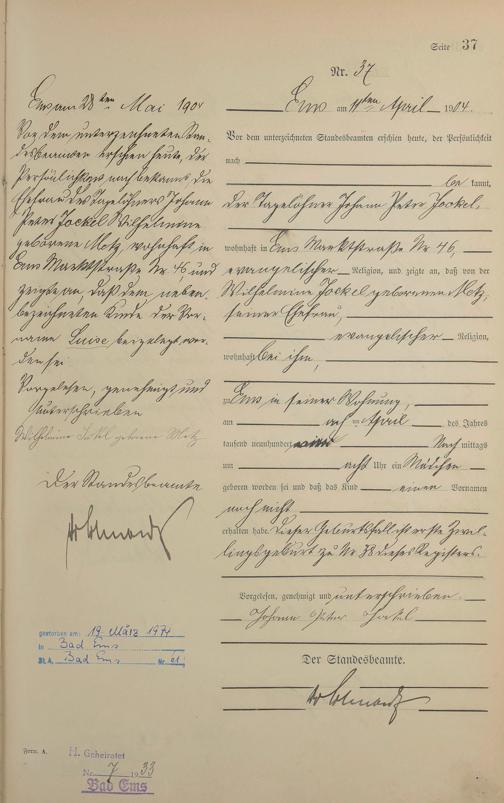 Seite 37
Nr. 37
Ems am 11ten April 1904.
Vor dem unterzeichneten Standesbeamten erschien heute, der Persönlichkeit
nach
be kannt,
der Tagelöhner Johann Peter Jockel
wohnhaft in Ems Marktstraße Nr. 46,
evangelischer Religion, und zeigte an, daß von der
Wilhelmine Jockel geborenen Motz,
seiner Ehefrau,
evangelischer Religion,
wohnhaft bei ihm,
zu Ems in seiner Wohnung,
am acht April des Jahres
tausend neunhundert vier Nach mittags
um acht Uhr ein Mädchen
geboren worden sei und daß das Kind einen Vornamen
noch nicht
erhalten habe. Dieser Geburtsfall ist erste Zwil-
lingsgeburt zu Nr 38 dieses Registers.
Vorgelesen, genehmigt und unterschrieben.
Johann Peter Jockel
Der Standesbeamte.
Ems am 28ten Mai 1904
Vor dem unterzeichneten Stan-
desbeamten erschien heute, der
Persönlichkeit nach bekannt, die
Ehefrau des Tagelöhners Johann
Peter Jockel Wilhelmine
geborene Motz, wohnhaft in
Ems Marktstraße Nr. 46 und
zeigte an, daß dem neben-
bezeichneten Kinde der Vor-
name Luise beigelegt wor-
den sei
Vorgelesen, genehmigt und
unterschrieben
Wilhelmine Jockel geborene Motz
Der Standesbeamte
gestorben am: 19. März 1971
in Bad Ems
St. A. Bad Ems Nr. 21
Form. A.
H. Geheiratet
Nr. 7 1933
Bad Ems